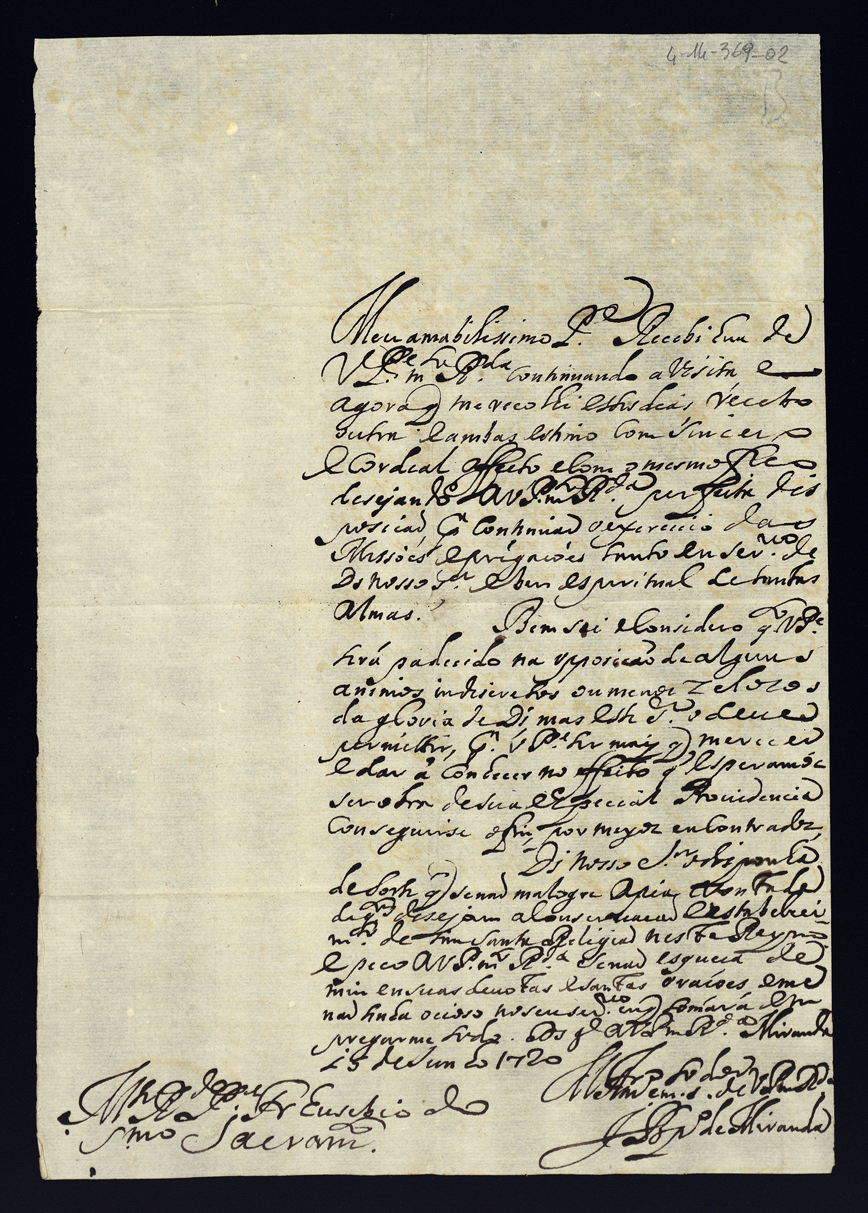 4-14-369-02
B
Meu amabilissimo P.e Recebi hua de
V P.e m.to R.da continuando a visita e
agora q me recolhi estes dias recebo
outra e ambas estimo com sincero
e Cordeal affecto e com o mesmo fico
desejando a V P. m.to R.da perfeita dis
posicaõ p.a continuar o exercicio das
Missões e prégaçoẽs tanto en ser.uco de
Ds nosso S.r e ben espiritual de tantas
Almas.
Bem sei e considero q V P.e
terá padecido na opposicaõ de alguns
animos indiscretos ou menos zelozos
da gloria de Ds mas este S.r o deue
permittir, p.a V P.e ter mais q merecer
e dar a conhecer no effeito q esperamos
ser obra de sua especial Prouidencia
conseguirse o fim por meyos encontrados,
Ds nosso S.r o disponha
de sorte q senaõ malogre a pia vontade
de q.m desejam a conseruacaõ e estabeleci
m.to de tam santa Religiaõ neste Reyno
e peço a V P. m.to R.da senaõ esqueca de
mim en suas deuotas e santas oraçoẽs e me
naõ tenha ocioso no seu ser.uco en q tomara em
pregarme todo. Ds g.de a V P. m.to R.da Miranda
15 de Junho 1720
M.to R.do P.e Fr Eusebio do
S.mo Sacram.to
B P.o de Miranda